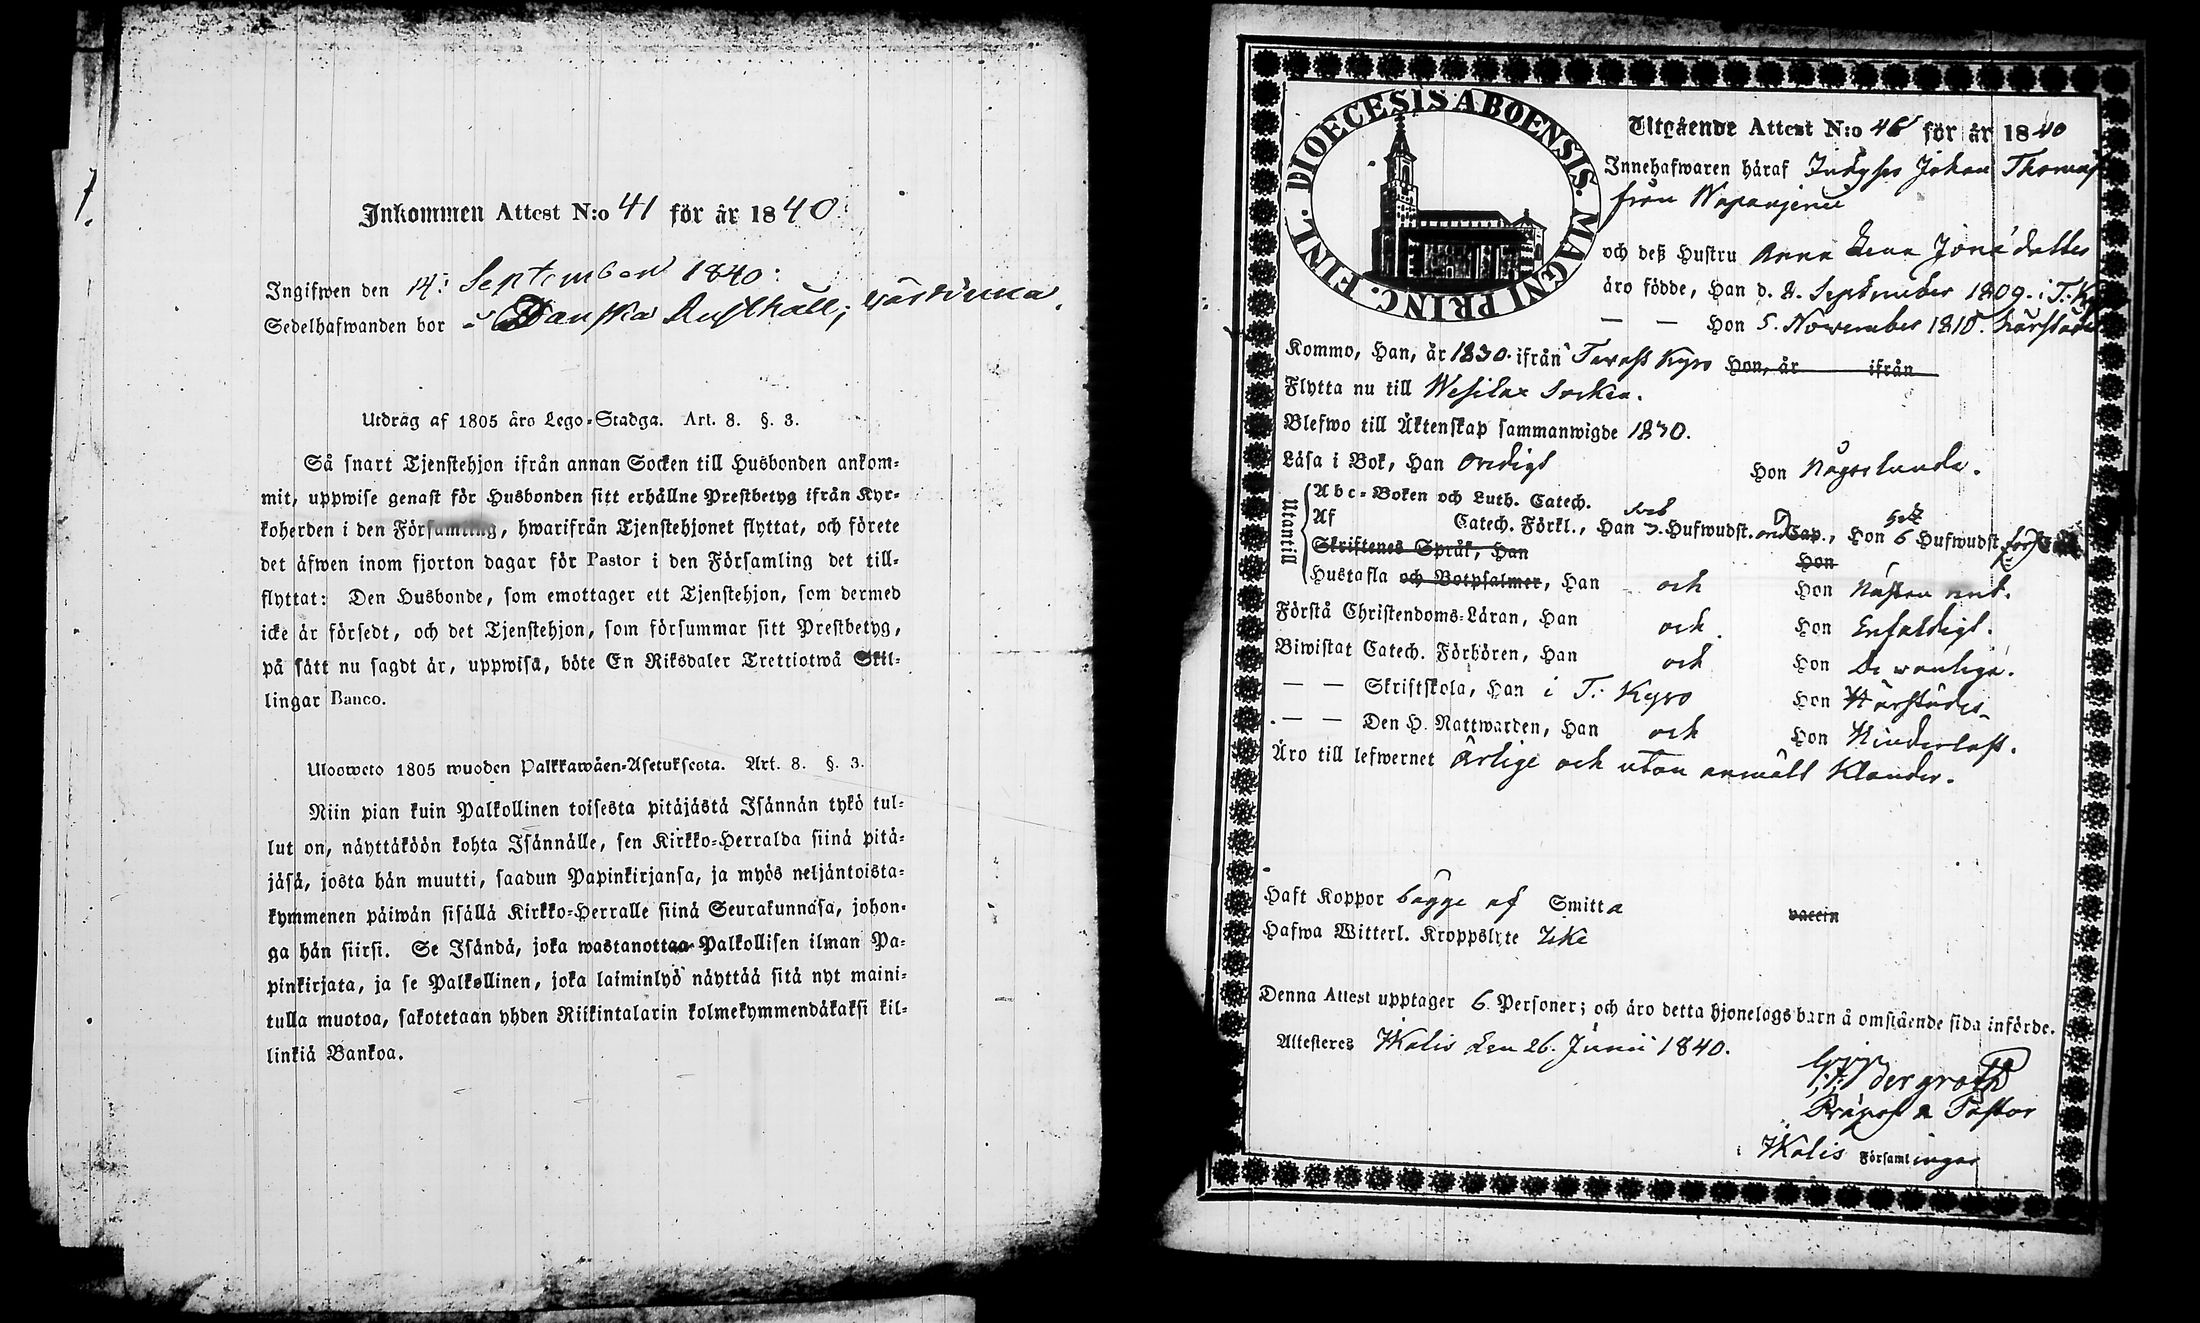 Inkommen Attest N:o 41 för år 1840.
Ingifwen den 14: September 1840:
Sedelhafwanden bor i Danska Rusthåll;
Utdrag af 1805 års Lego-Stadga. Art. 8. §. 3.
Så snart Tjenstehjon ifrån annan Socken till Husbonden ankom-
mit, uppwise genast för Husbonden sitt erhållne Prestbetyg ifrån Kyr-
koherden i den Församling, hwarifrån Tjenstehjonet flyttat, och förete
det äfwen inom fjorton dagar för Pastor i den Församling det till-
flyttat: Den Husbonde, som emottager ett Tjenstehjon, som dermed
icke är försedt, och det Tjenstehjon, som försummar sitt Prestbetyg,
på sätt nu sagdt är, uppwisa, böte En Riksdaler Trettiotwå Skil-
lingar Banco.
Uloosweto 1805 wuoden Palkkawäen-Asetuksesta. Art. 8. §. 3.
Niin pian kuin Palkollinen toisesta pitäjästä Isännän tykö tul-
lut on, näyttäköön kohta Isännälle, sen Kirkko-Herralda siinä pitä-
jäsä, josta hän muutti, saadun Papinkirjansa, ja myös neljäntoista-
kymmenen päiwän sisällä Kirkko-Herralle siinä Seurakunnasa, johon-
ga hän siirsi. Se Isändä, joka wastanottaa Palkollisen ilman Pa-
pinkirjata, ja se Palkollinen, joka laiminlyö näyttää sitä nyt maini-
tulla muotoa, sakotetaan yhden Riikintalarin kolmekymmendäkaksi kil-
linkiä Bankoa.
DIOECESIS ABOENSIS. MAGNI PRINC. FINL.
Utgående Attest N:o 46 för år 1840
Innehafwaren häraf Inhyses Johan Thomas
från
och deß Hustru Anna Lena Jons dotter
äro födde, Han d. 2. September 1809. i T. Kyro
— — Hon 5. November 1810. härstädes
Kommo, Han, år 1830. ifrån Tavast Kyro Hon, år ifrån
Flytta nu till Wesilax Socken.
Blefwo till Äktenskap sammanwigde 1830.
Läsa i Bok, Han Ordigt Hon Någorlunda.
Utantill
Abc-Boken och Luth. Catech.
Af Catech. Förkl., Han 3. Hufwudst. Cap., Hon 6 Hufwudst.
Skriftenes Språk, Han Hon
Hustafla och Botpsalmer, Han och Hon Nästan rent.
Förstå Christendoms-Läran, Han och Hon Enfaldigt.
Biwistat Catech. Förhören, Han och Hon De wanliga.
— — Skriftskola, Han i T. Kyro Hon Härstädes
— — Den H. Nattwarden, Han och Hon
Äro till lefwernet ärlige och utan anmält Klander.
Haft Koppor bägge af Smitta vaccin
Hafwa Witterl. Kroppslyte Icke
Denna Attest upptager 6 Personer; och äro detta hjonelags barn å omstående sida införde.
Attesteres Ikalis den 26. Junii 1840.
Bergroth
Pastor
i Ikalis Församlingar